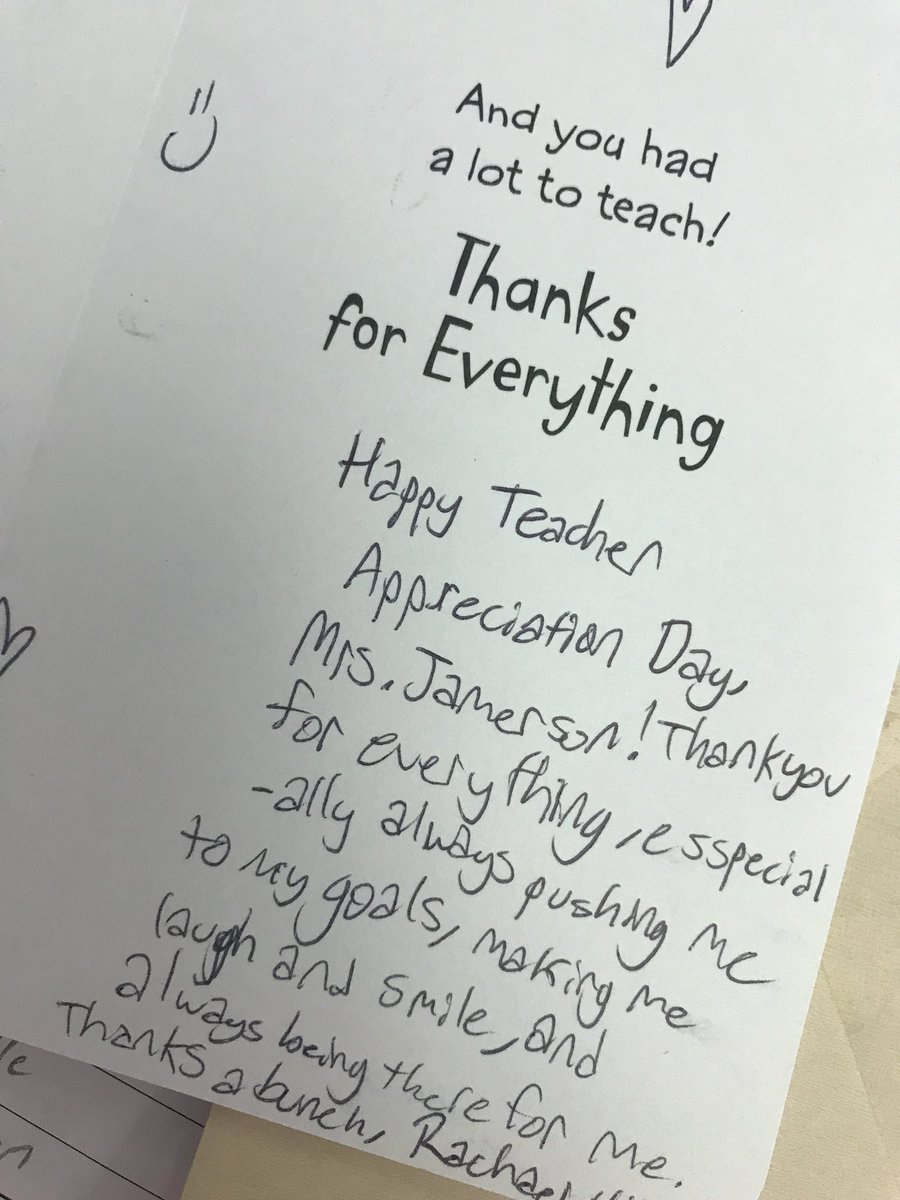 And you had
a lot to teach!
Thanks
for Everything
Happy Teacher
Appreciation Day,
Mrs. Jamerson! Thankyou
for everything, esspecial
-ally always pushing me
to my goals, making me
laugh and smile, and
always being there for me.
Thanks a bunch, Rachael